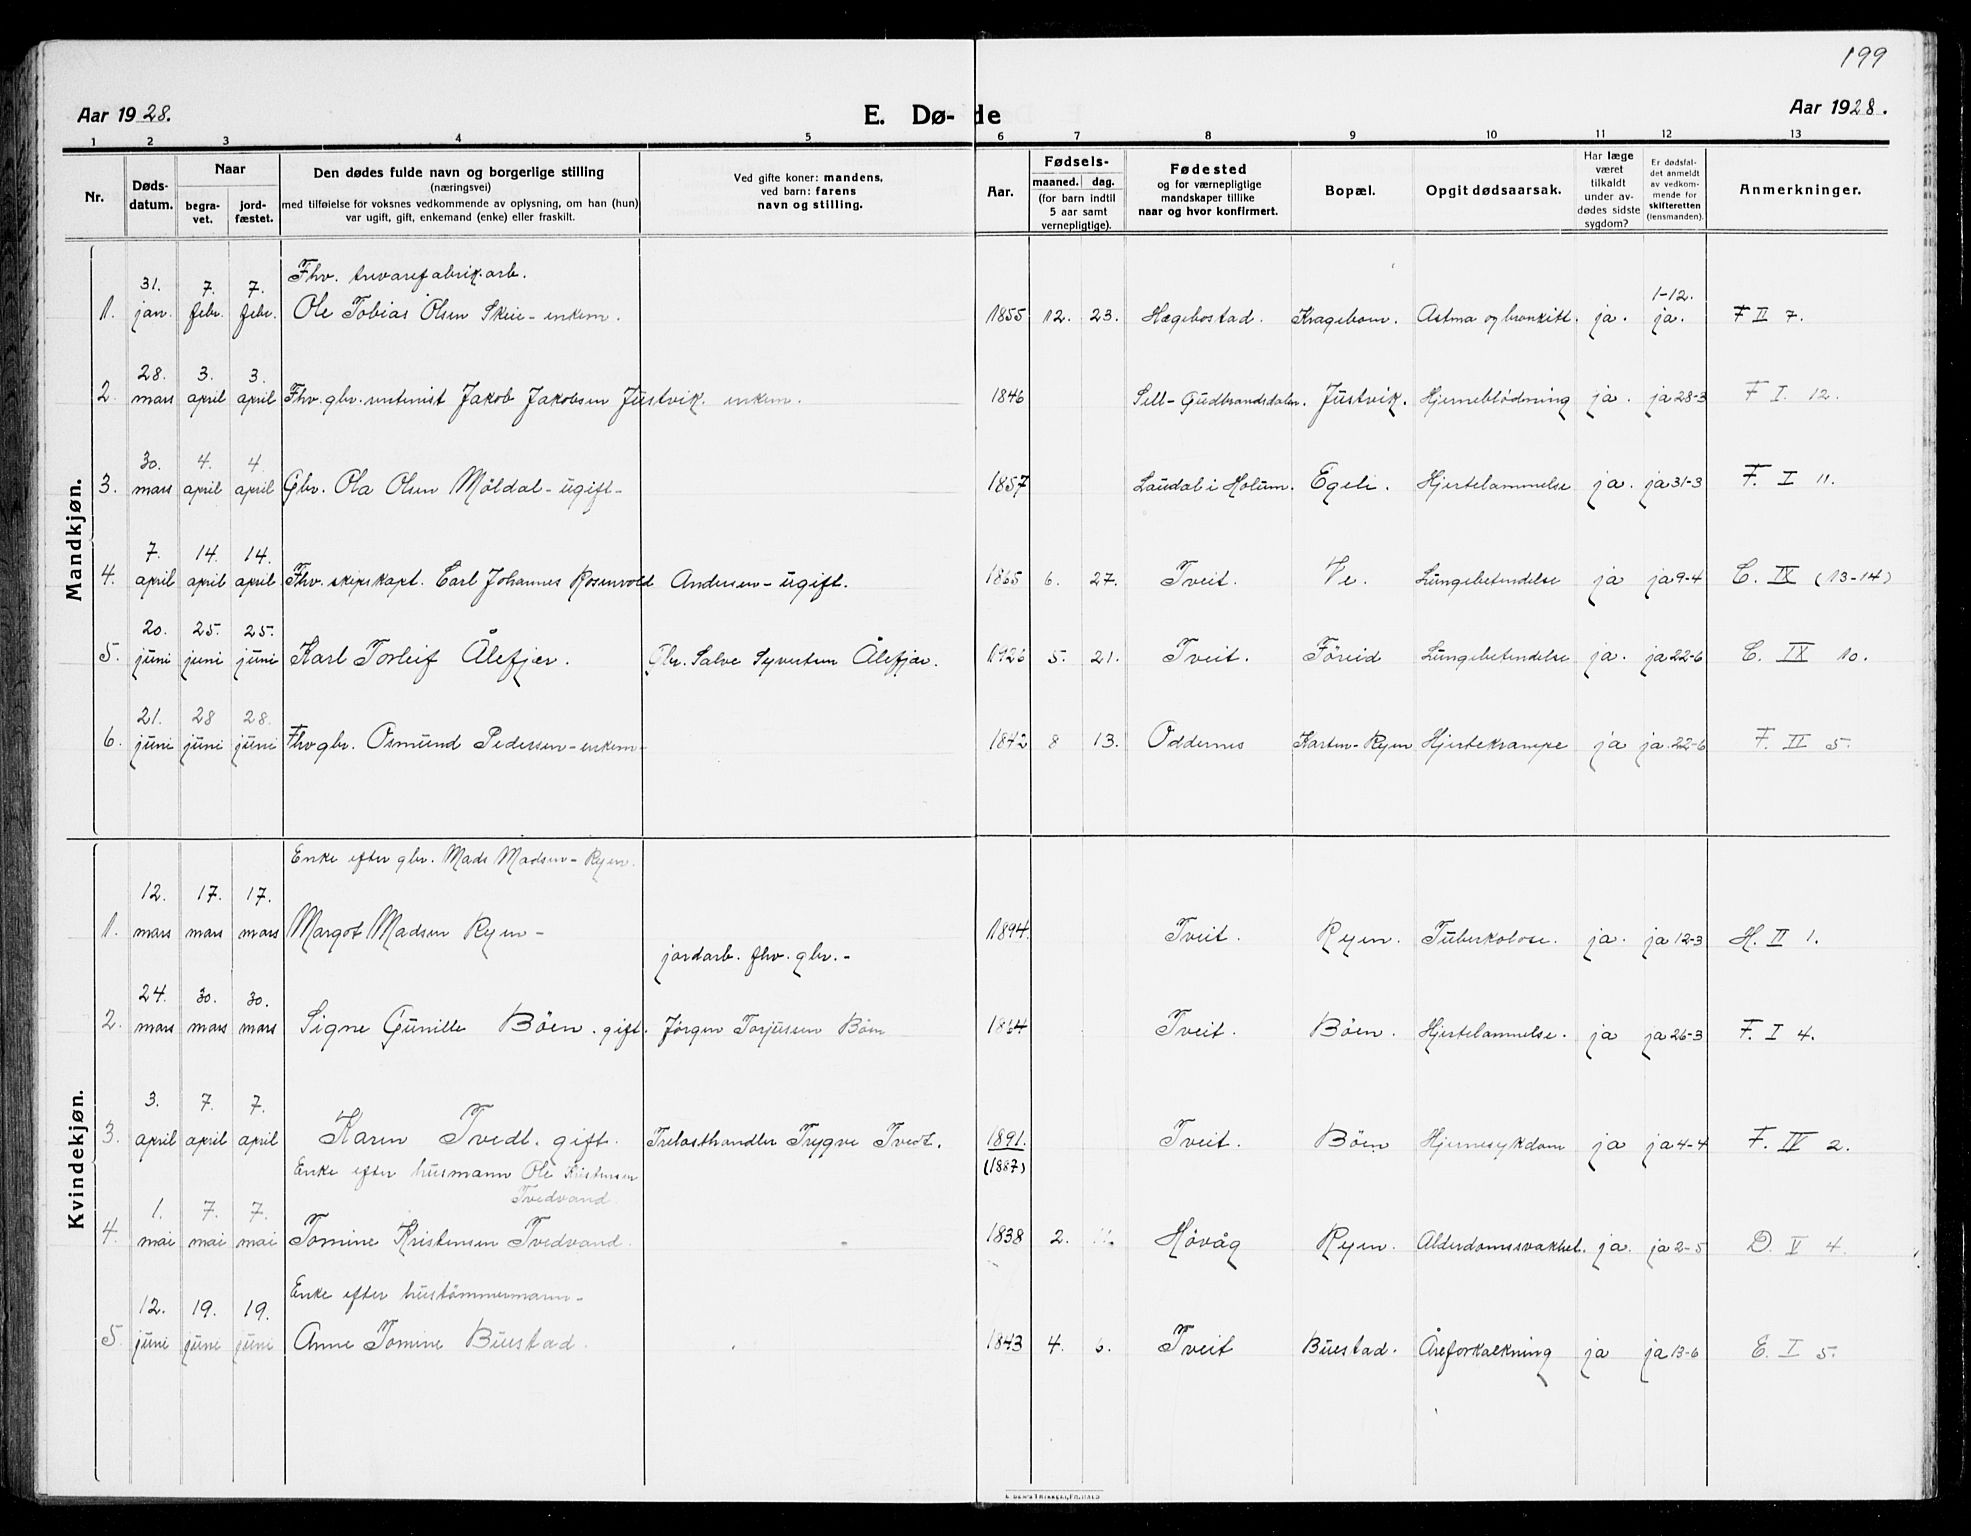 199
Aar 1928.
E. Dø-de
Aar 1928.
1 2 3 4 5 6 7 8 9 10 11 12 13
Nr.
Dødsdatum.
Naar
begravet.
jordfæstet.
Den dødes fulde navn og borgerlige stilling
(næringsvei)
med tilføielse for voksnes vedkommende av oplysning, om han (hun)
var ugift, gift, enkemand (enke) eller fraskilt.
Ved gifte koner: mandens,
ved barn: farens
navn og stilling.
Aar.
Fødsels-
maaned. dag.
(for barn indtil
5 aar samt
vernepligtige).
Fødested
og for værnepligtige
mandskaper tillike
naar og hvor konfirmert.
Bopæl.
Opgit dødsaarsak.
Har læge
været
tilkaldt
under av-
dødes sidste
sygdom?
Er dødsfal-
det anmeldt
av vedkom-
mende for
skifteretten
(lensmanden).
Anmerkninger.
Mandkjøn.
Fhv. trevarefabrik.arb.
1. 31. jan. 7. febr. 7. febr. Ole Tobias Olsen Skeie - enkem. 1855 12. 23. Hægebostad. Kragebom. Astma og bronkitt. ja. 1-12. ja. F II 7.
2. 28. mars 3. april 3. april Fhv. gbr. Jakob Jakobsen Justvik. enkem. 1846 Sell - Gudbrandsdalen. Justvik. Hjerneblödning ja. ja 28-3 F I. 12.
3. 30. mars 4. april 4. april Gbr. Ola Olsen Möldal - ugift - 1857 Laudal i Holum. Egeli. Hjertelammelse ja. ja 31-3 F. I 11.
4. 7. april 14. april 14. april Fhv. skipskapt. Carl Johannes Rosenvold Andersen - ugift. 1865 6. 27. Tveit. Ve. Lungebetendelse ja ja 9-4 C. IX (13-14)
5. 20. juni 25. juni 25. juni Karl Torleif Ålefjær. Gbr. Salve Syvertsen Ålefjær. 1926 5. 21. Tveit. Föreid Lungebetendelse ja. ja 22-6 C. IX 10.
6. 21. juni 28 juni 28. juni Fhv gbr. Osmund Pedersen - enkem - 1842 8 13. Oddernes Karsten-Ryen Hjertekrampe ja ja. 22-6 F. II 5.
Kvindekjøn.
Enke efter gbr. Mads Madsen - Ryen.
1. 12. mars 17. mars 17. mars Margot Madsen Ryen - 1894. Tveit. Ryen. Tuberkolose. ja. ja 12-3 H. II 1.
jordarb. fhv. gbr. -
2. 24. mars 30. mars 30. mars Signe Gunille Böen. gift. Jörgen Torjussen Böen 1864 Tveit. Böen. Hjertelammelse. ja ja 26-3 F. I 4.
3. 3. april 7. april 7. april Karen Tvedt. gift. Trelasthandler Trygve Tvedt. 1891. (1887) Tveit. Böen Hjernesykdom ja ja 4-4 F. IV 2.
Enke efter husmann Ole Kristensen
Tvedvand.
4. 1. mai 7. mai 7. mai Tomine Kristensen Tvedvand. 1838 2. Hövåg Ryen. Alderdomssvakhet. ja. ja 2-5 D. V 4.
Enke efter hustömmermann -
5. 12. juni 19. juni 19. juni Anne Tomine Buestad. 1843 4. 6. Tveit Buestad. Åreforkalkning ja ja 13-6 E. I 5.